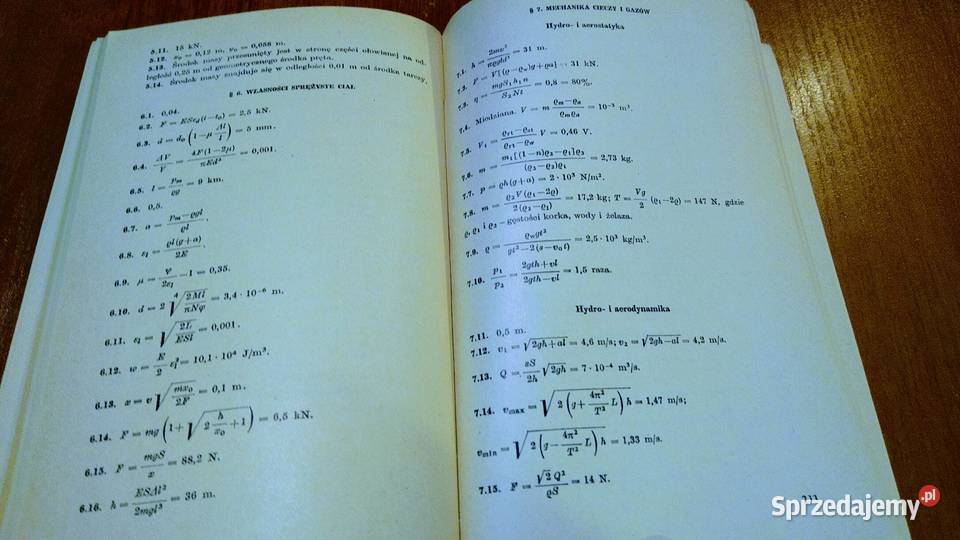 5.11. 15 kN.
5.12. x₀ = 0,12 m, v₀ = 0,058 m.
5.13. Środek masy przesunięty jest w stronę części ołowianej na od-
ległość 0,25 m od geometrycznego środka pręta.
5.14. Środek masy znajduje się w odległości 0,01 m od środka tarczy.
§ 6. WŁASNOŚCI SPRĘŻYSTE CIAŁ
6.1. 0,04.
6.2. F = ESε₀(t−t₀) = 2,5 kN.
6.3. d = d₀(1−μ Δl/l) = 5 mm.
6.4. ΔV/V = 4F(1−2μ)/πEd² = 0,001.
6.5. l = pₘ/ϱg = 9 km.
6.6. 0,5.
6.7. a = (pₘ−ϱgl)/ϱl.
6.8. ε₁ = ϱl(g+a)/2E.
6.9. μ = φ/2ε₁ −1 = 0,35.
6.10. d = 2 ⁴√(2Ml/πNφ) = 3,4 · 10⁻⁶ m.
6.11. ε₁ = √(2L/ESl) = 0,001.
6.12. w = E/2 ε₁² = 10,1 · 10⁴ J/m³.
6.13. x = v√(mx₀/2F) = 0,1 m.
6.14. F = mg(1+√(2 h/x₀ +1)) = 6,5 kN.
6.15. F = mgS/x = 88,2 N.
6.16. h = ESΔl²/2mgl³ = 36 m.
§ 7. MECHANIKA CIECZY I GAZÓW
Hydro- i aerostatyka
7.1. = 31 m.
7.2. F = V[(ϱ−ϱw)g+ϱa] = 31 kN.
7.3. η = mgS₁h₁n/S₂Nt = 0,8 = 80%.
7.4. Miedziana. = 10⁻³ m³.
7.5. V = 0,46 V.
7.6. m = m₁[(1−n)ϱ₂−ϱ₁]ϱ₃/(ϱ₃−ϱ₂)ϱ₁ = 2,73 kg.
7.7. p = ϱh(g+a) = 2 · 10³ N/m².
7.8. m = ϱ₂V(ϱ₁−2ϱ)/2(ϱ₂−ϱ₁) = 17,2 kg; T = Vg/2 (ϱ₁−2ϱ) = 147 N, gdzie
ϱ, ϱ₁ i ϱ₂ – gęstości korka, wody i żelaza.
7.9. ϱ = ϱwgt²/(gt²−2(s−v₀t)) = 2,5 · 10³ kg/m³.
7.10. p₁/p₂ = (2gth+vl)/(2gth−vl) = 1,5 raza.
Hydro- i aerodynamika
7.11. 0,5 m.
7.12. v₁ = √(2gh+al) = 4,6 m/s; v₂ = √(2gh−al) = 4,2 m/s.
7.13. Q = sS/2h √(2gh) = 7 · 10⁻⁴ m³/s.
7.14. vmax = √(2(g+4π²/T² L)h) = 1,47 m/s;
vmin = √(2(g−4π²/T² L)h) = 1,33 m/s.
7.15. F = √2 Q²/ϱS = 14 N.
Sprzedajemy.pl